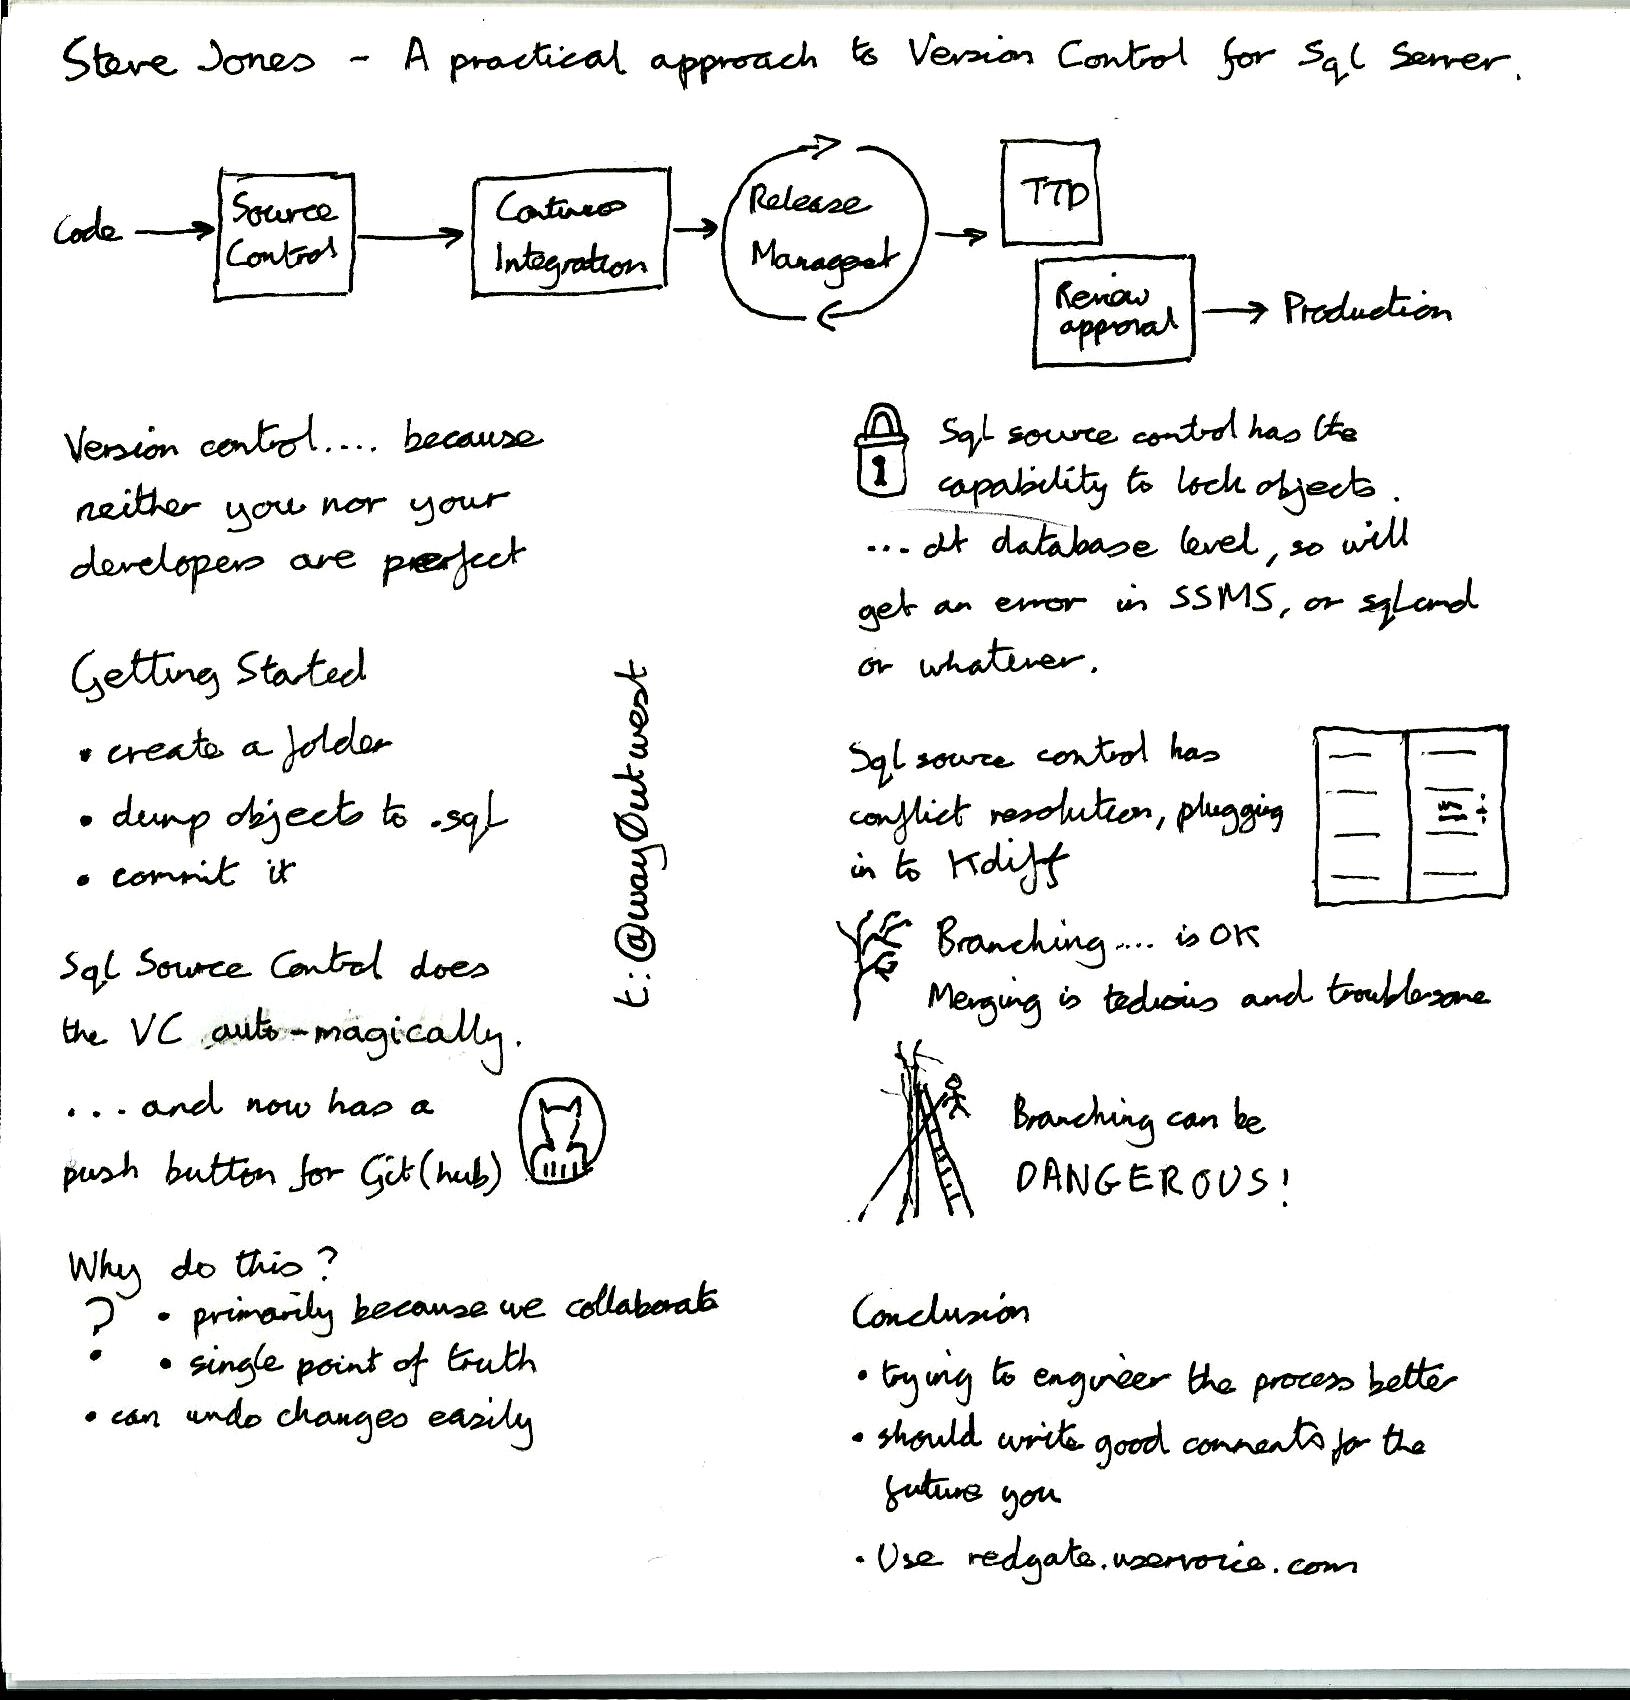 Steve Jones - A practical approach to Version Control for Sql Server.
Code
Source
Control
Continuos
Integration
Release
Managent
TTD
Review
approval
Production
Version control.... because
neither you nor your
developers are perfect
Getting Started
• create a folder
• dump objects to .sql
• commit it
Sql Source Control does
the VC auto-magically.
....and now has a
push button for Git(hub)
Why do this?
?
• primarily because we collaborate
• single point of truth
• can undo changes easily
t:@way0utwest
Sql source control has the
capability to lock objects.
... at database level, so will
get an error in SSMS, or sqlcmd
or whatever.
Sql source control has
conflict resolution, plugging
in to Kdiff
Branching.... is OK
Merging is tedious and troublesome
Branching can be
DANGEROUS!
Conclusion
• trying to engineer the process better
• should write good comments for the
future you
• Use redgate.uservoice.com